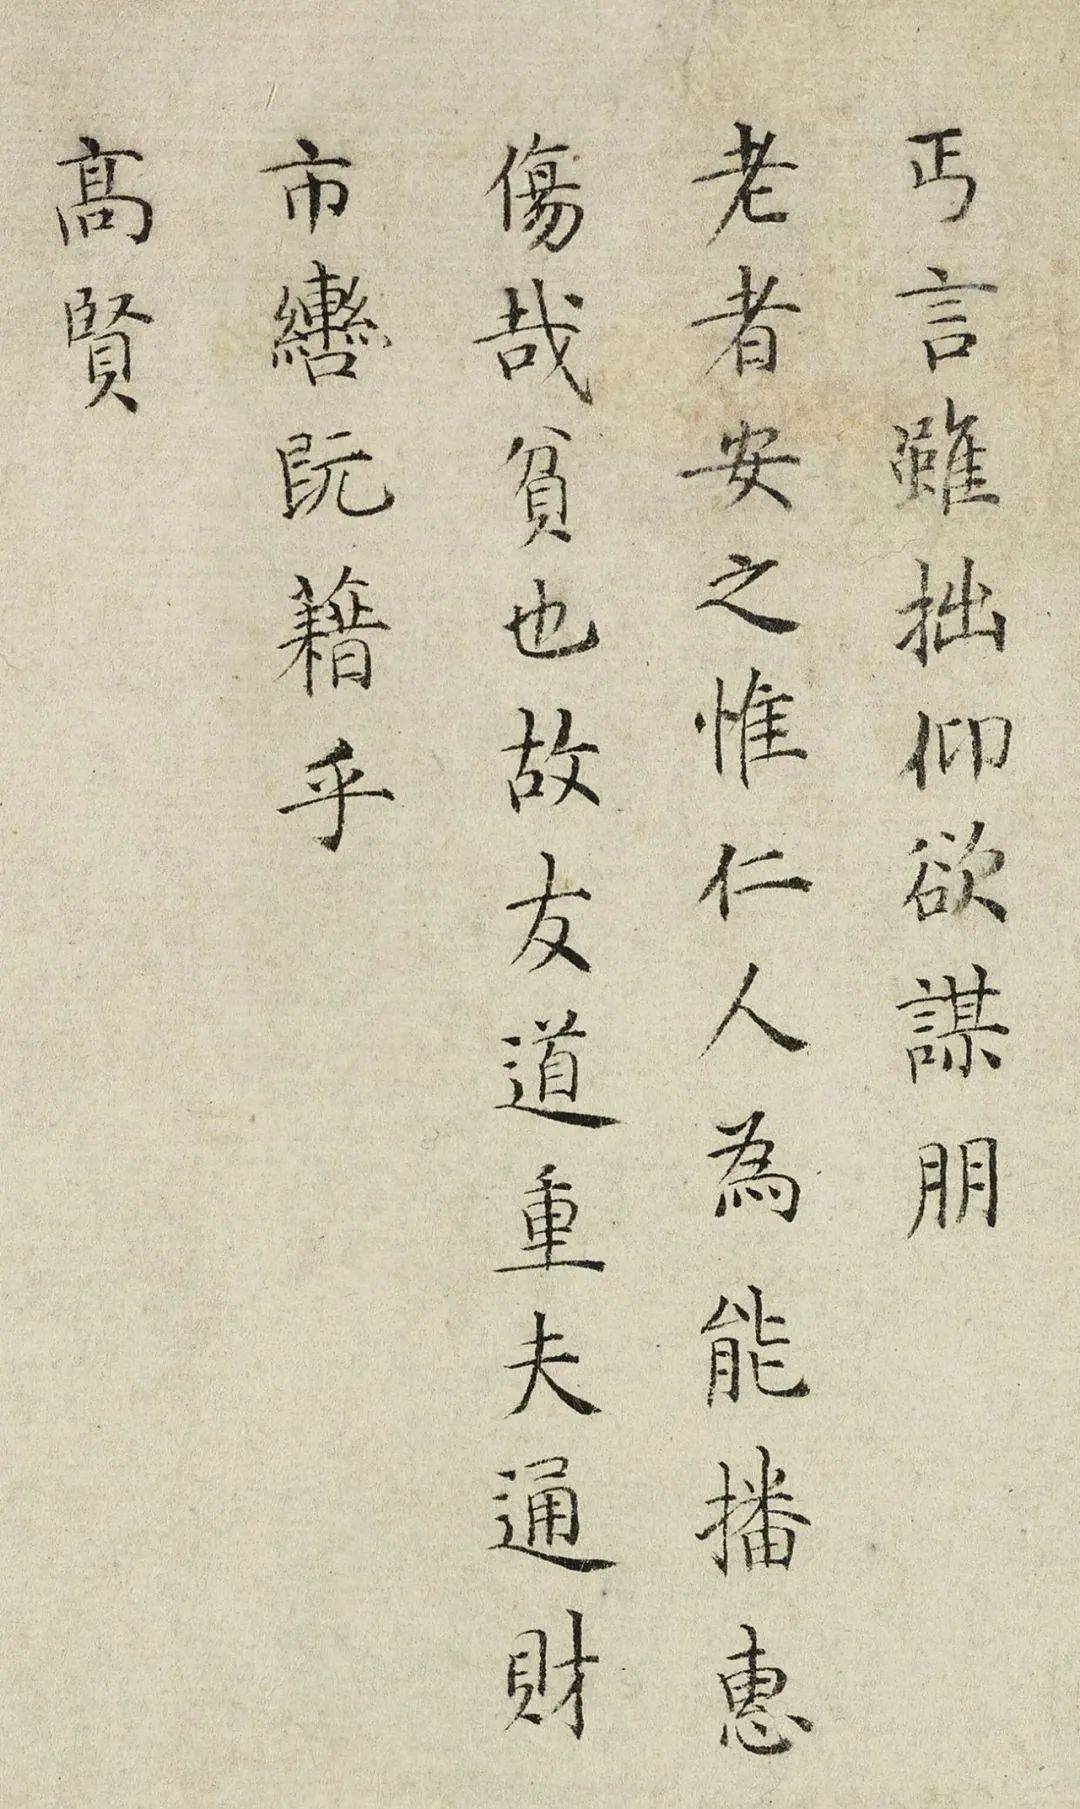 丐言雖拙仰欲謀朋
老者安之惟仁人為能播惠
傷哉貧也故友道重夫通財
市轡阮籍乎
高賢